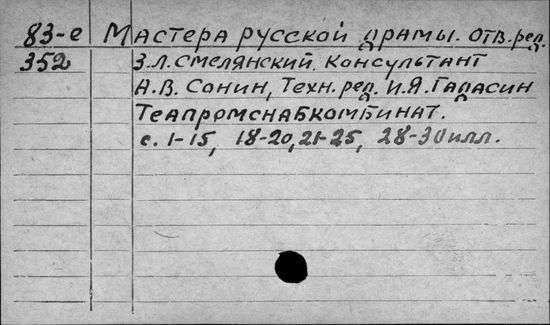 83-е Мастера русской драмы. Отв. ред.
352 З.Л. Смелянский. Консультант
А.В. Сонин, Техн. ред. И.Я. Гадасин
Теапромснабкомбинат.
с. 1-15, 18-20, 21-25, 28-30 илл.